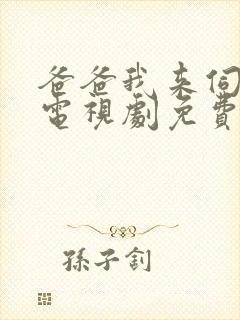 爸爸我来伺
電視劇免費
孫子釗